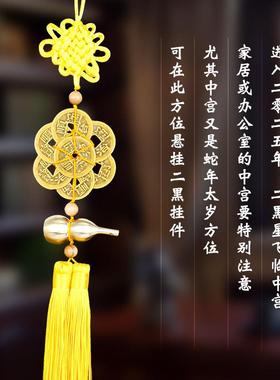 进入二零二五年，二黑星飞临中宫
家居或办公室的中宫要特别注意
尤其中宫又是蛇年太岁方位
可在此方位悬挂二黑挂件